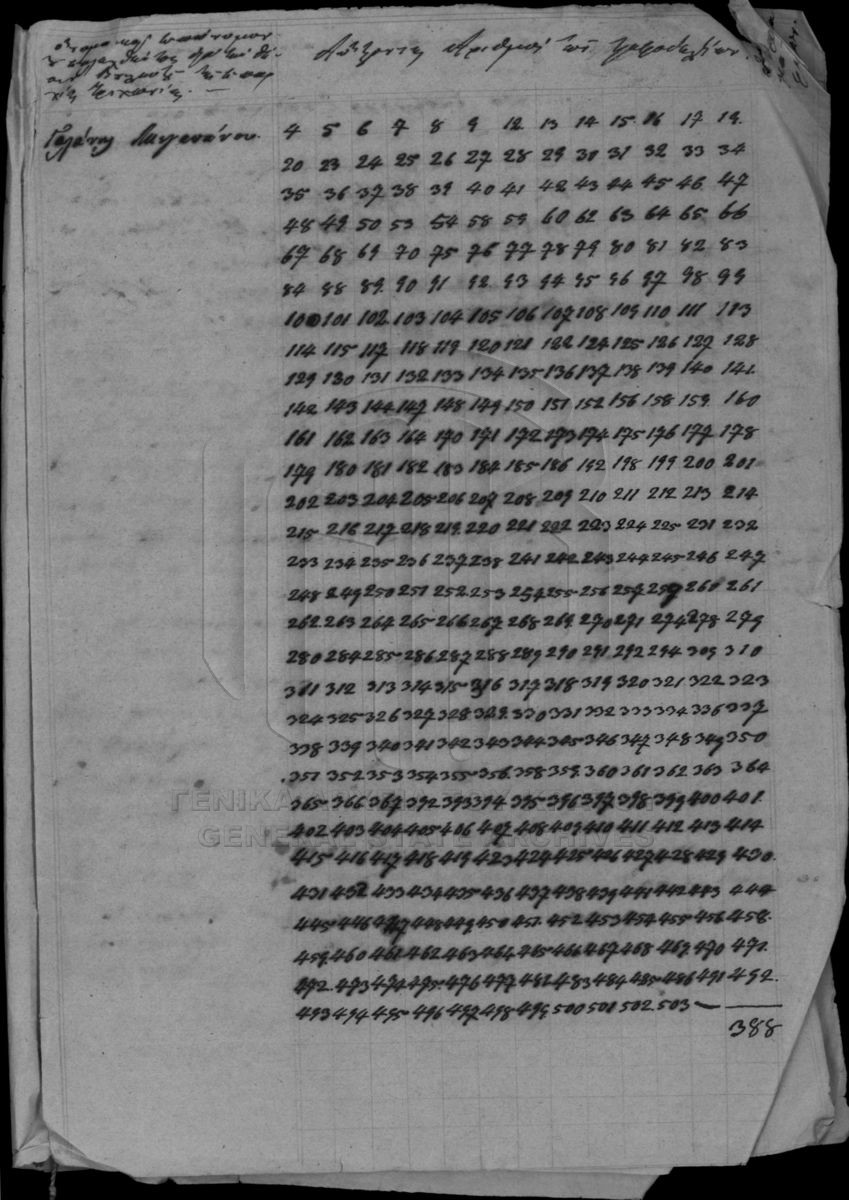 Αύξοντες Αριθμοί των ψηφοδελτίων.
4 5 6 7 8 9 12 13 14 15 16 17 19
20 23 24 25 26 27 28 29 30 31 32 33 34
35 36 37 38 39 40 41 42 43 44 45 46 47
48 49 50 53 54 58 59 60 62 63 64 65 66
67 68 69 70 75 76 77 78 79 80 81 82 83
84 88 89 90 91 92 93 94 95 96 97 98 99
100 101 102 103 104 105 106 107 108 109 110 111 113
114 115 117 118 119 120 121 122 124 125 126 127 128
129 130 131 132 133 134 135 136 137 138 139 140 141
142 143 144 147 148 149 150 151 152 156 158 159 160
161 162 163 164 170 171 172 173 174 175 176 177 178
179 180 181 182 183 184 185 186 192 198 199 200 201
202 203 204 205 206 207 208 209 210 211 212 213 214
215 216 217 218 219 220 221 222 223 224 225 231 232
233 234 235 236 237 238 241 242 243 244 245 246 247
248 249 250 251 252 253 254 255 256 257 259 260 261
262 263 264 265 266 267 268 269 270 271 274 278 279
280 284 285 286 287 288 289 290 291 292 294 309 310
311 312 313 314 315 316 317 318 319 320 321 322 323
324 325 326 327 328 329 330 331 332 333 334 336 337
338 339 340 341 342 343 344 345 346 347 348 349 350
351 352 353 354 355 356 358 359 360 361 362 363 364
365 366 367 392 393 394 395 396 397 398 399 400 401
ΓΕΝΙΚΑ
402 403 404 405 406 407 408 409 410 411 412 413 414
GENERAL STATE ARCHIVES
415 416 417 418 419 423 424 425 426 427 428 429 430
431 432 433 434 435 436 437 438 439 441 442 443 444
445 446 447 448 449 450 451 452 453 454 455 456 458
459 460 461 462 463 464 465 466 467 468 469 470 471
472 473 474 475 476 477 482 483 484 485 486 491 492
493 494 495 496 497 498 499 500 501 502 503 —
388